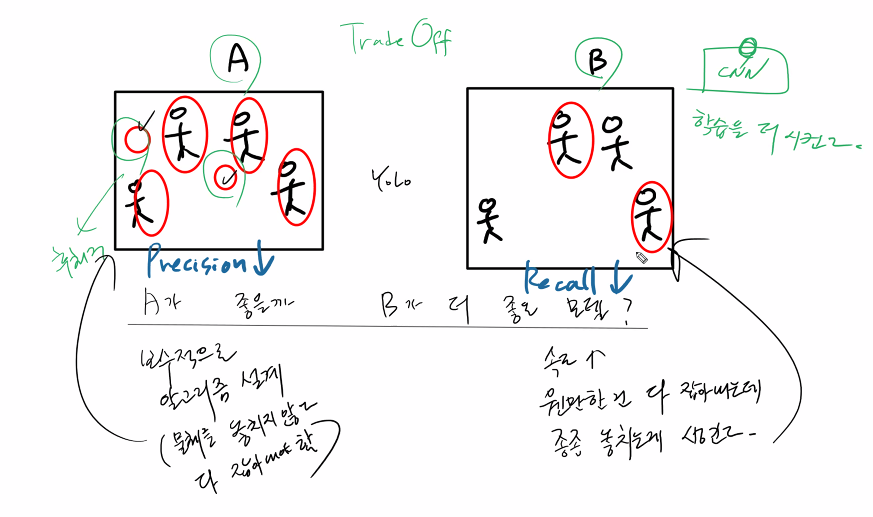 Trade Off
A
B
CNN
학습을 더 시킨다.
Yolo
후처리
Precision ↓
Recall ↓
A가 좋을까 B가 더 좋은 모델?
보수적으로
알고리즘 설계
(물체를 놓치지 않고
다 잡아내야 함)
속도 ↑
웬만한건 다 잡아내는데
종종 놓치는게 생긴다.